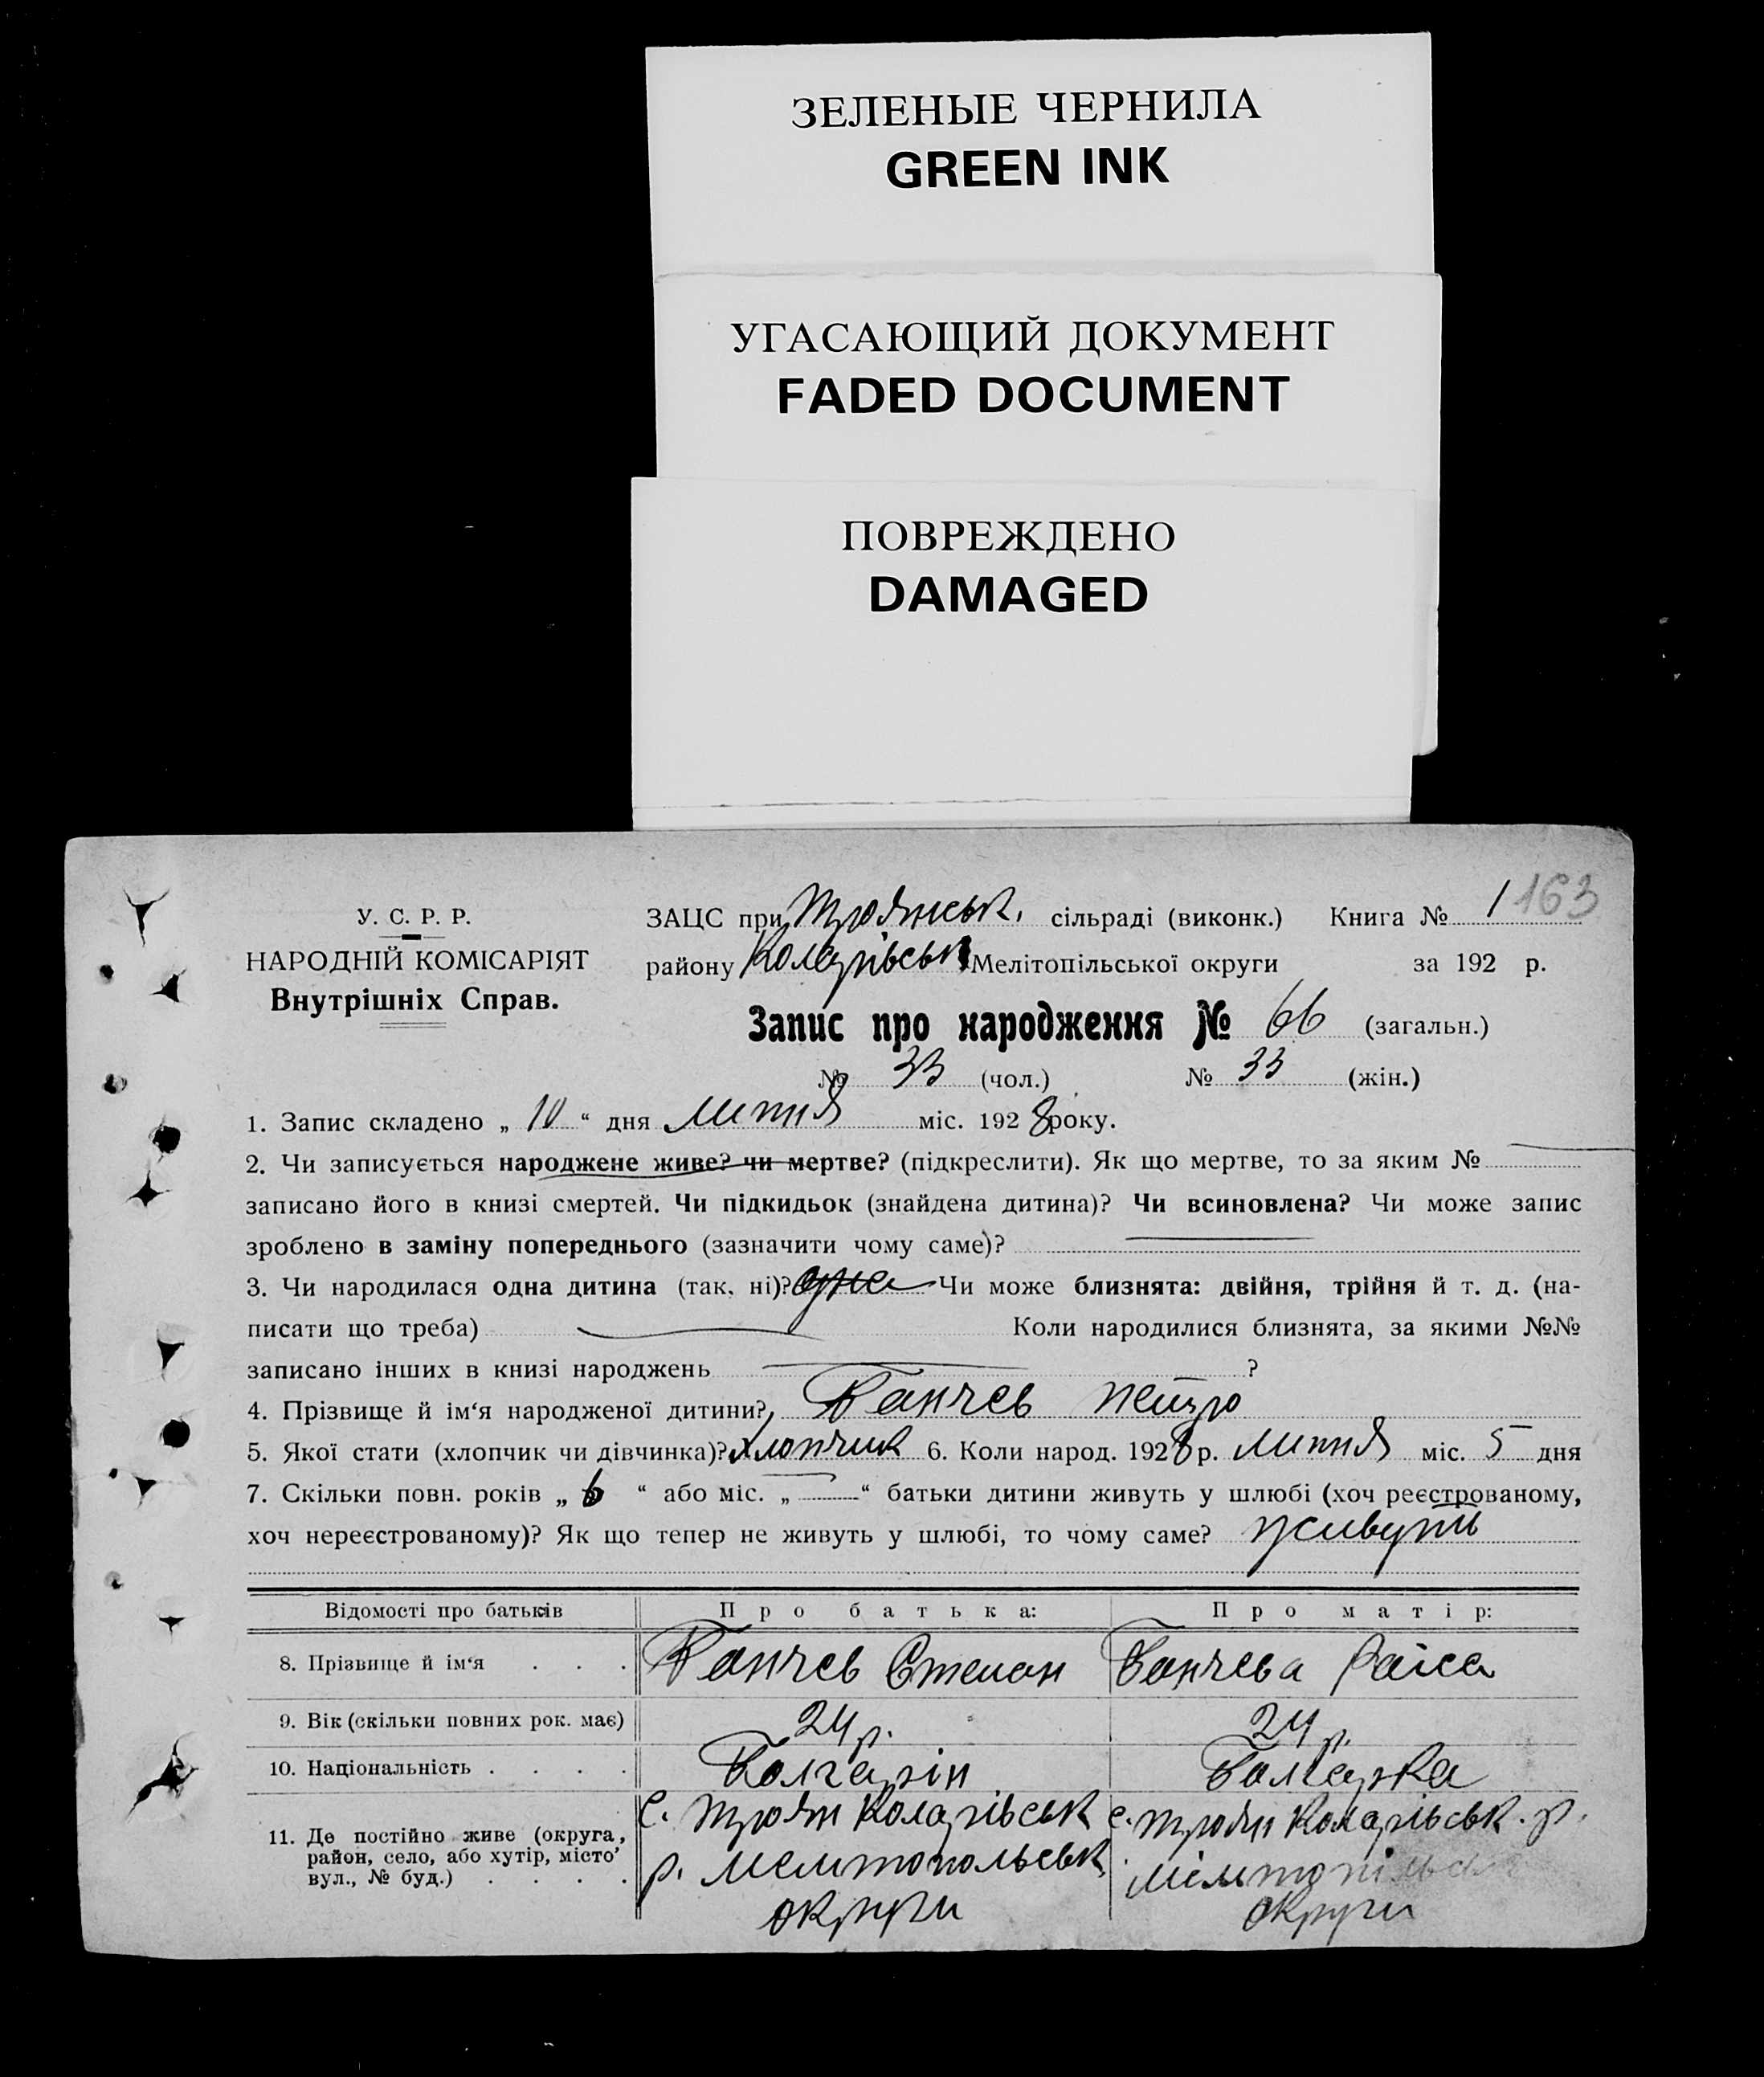 ЗЕЛЕНЫЕ ЧЕРНИЛА
GREEN INK
УГАСАЮЩИЙ ДОКУМЕНТ
FADED DOCUMENT
ПОВРЕЖДЕНО
DAMAGED
У. С. Р. Р.
НАРОДНІЙ КОМІСАРІЯТ
Внутрішніх Справ.
ЗАЦС при Троянськ. сільраді (виконк.) Книга № 1 163
району Коларівськ Мелітопільської округи за 192 р.
Запис про народження № 66 (загальн.)
№ 33 (чол.) № 33 (жін.)
1. Запис складено „ 10 “ дня Липня міс. 1928 року.
2. Чи записується народжене живе? чи мертве? (підкреслити). Як що мертве, то за яким №
записано його в книзі смертей. Чи підкидьок (знайдена дитина)? Чи всиновлена? Чи може запис
зроблено в заміну попереднього (зазначити чому саме)?
3. Чи народилася одна дитина (так, ні)? одна Чи може близнята: двійня, трійня й т. д. (на-
писати що треба) Коли народилися близнята, за якими №№
записано інших в книзі народжень ?
4. Прізвище й ім‘я народженої дитини? Ганчев Петро
5. Якої стати (хлопчик чи дівчинка)? хлопчик 6. Коли народ. 1928 р. Липня міс. 5 дня
7. Скільки повн. років „ 6 “ або міс. „ “ батьки дитини живуть у шлюбі (хоч реєстрованому,
хоч нереєстрованому)? Як що тепер не живуть у шлюбі, то чому саме? живуть
Відомості про батьків Про батька: Про матір:
8. Прізвище й ім‘я . . . Ганчев Степан Ганчева Раїса
9. Вік (скільки повних рок. має) 24 р. 24 р.
10. Національність . . . . Болгарін Болгарка
11. Де постійно живе (округа, с. Троян Коларівськ с. Троян Коларівськ. р.
район, село, або хутір, місто’ р. Мелитопольськ Мелітопільськ
вул., № буд.) . . . . округи округи